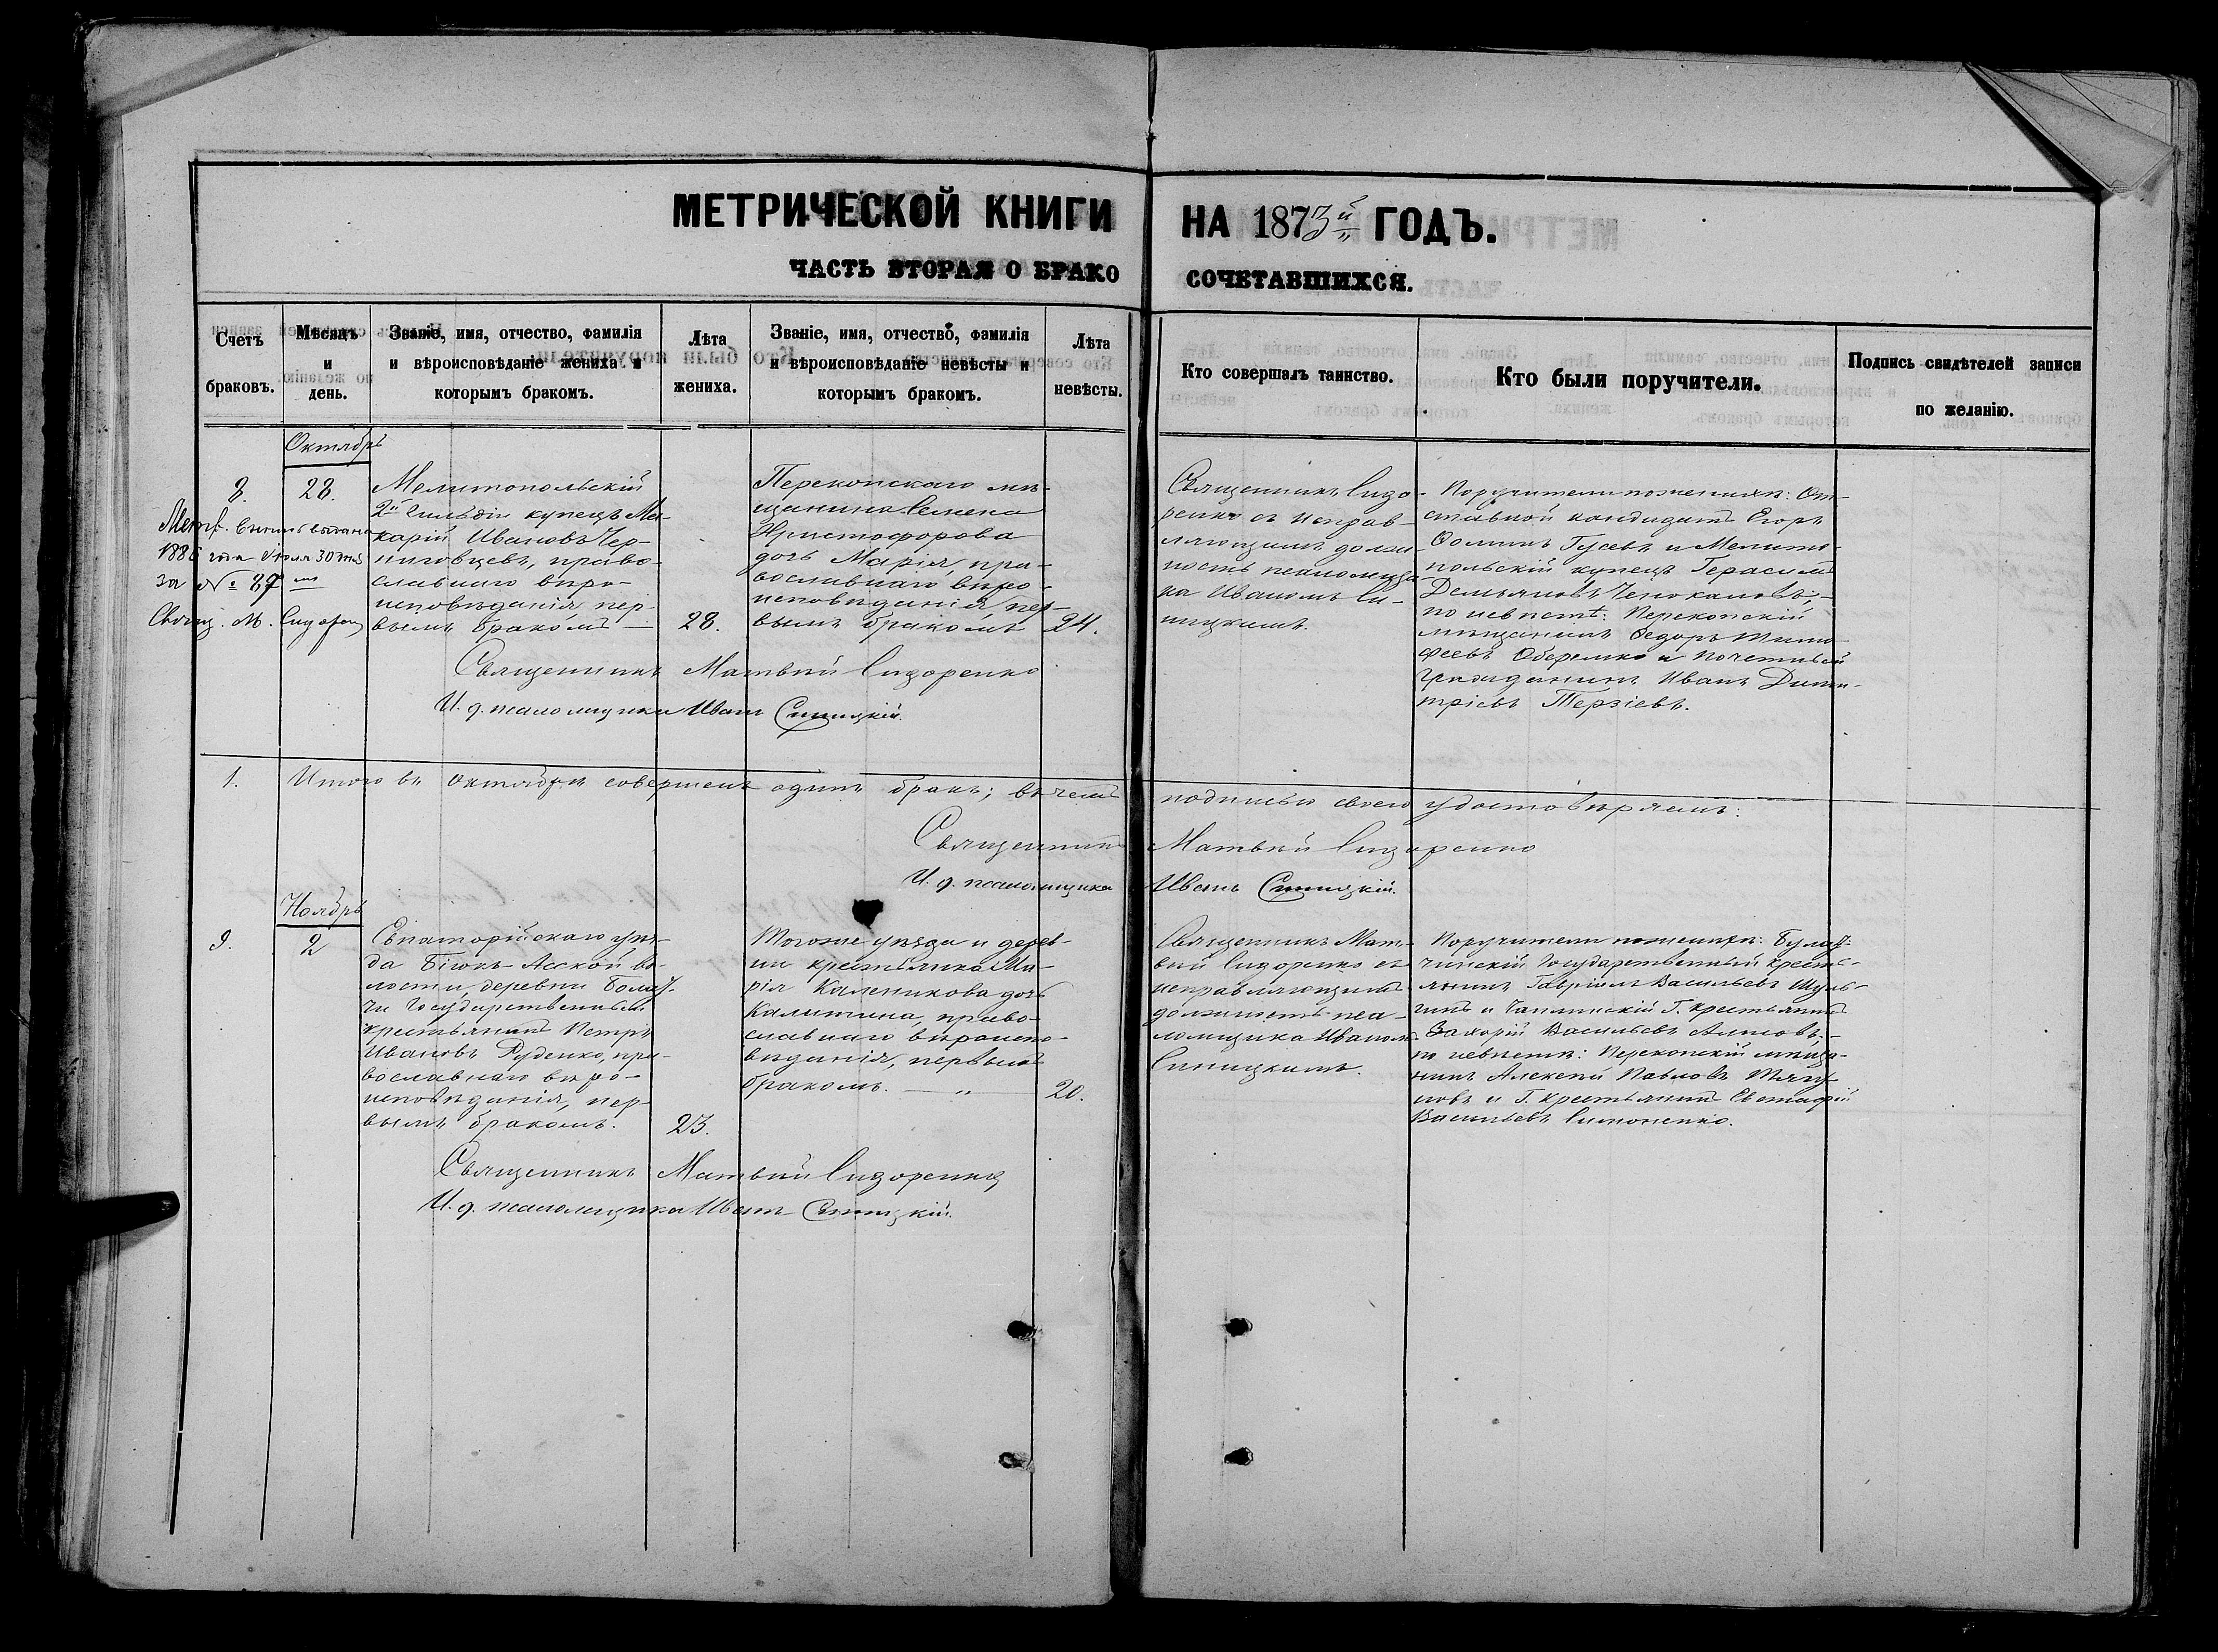 МЕТРИЧЕСКОЙ КНИГИ НА 1873й ГОДЪ.
ЧАСТЬ ВТОРАЯ О БРАКОСОЧЕТАВШИХСЯ.
Счетъ браковъ.
Мѣсяцъ и день.
Званіе, имя, отчество, фамилія
и вѣроисповѣданіе жениха и
которымъ бракомъ.
Лѣта
жениха.
Званіе, имя, отчество, фамилія
и вѣроисповѣданіе невѣсты и
которымъ бракомъ.
Лѣта
невѣсты.
Кто совершалъ таинство.
Кто были поручители.
Подпись свидѣтелей записи
по желанію.
Октябрь
8.
28.
Метр. выпись выдана
1886 года Іюля 30 дня
за № 27
Свящ. М. Сидорен
Мелитопольскій
2й гильдіи купецъ Ма-
карій Ивановъ Чер-
ниговцевъ, право-
славнаго вѣро-
исповѣданія, пер-
вымъ бракомъ
28.
Перекопскаго мѣ-
щанина Семена
Христофорова
дочь Марія, пра-
вославнаго вѣро-
исповѣданія, пер-
вымъ бракомъ
24.
Священникъ Сидо-
ренко съ исправ-
ляющимъ долж-
ность псаломщи-
ка Иваномъ Си-
ницкимъ.
Поручители по женихѣ: От-
ставной кандидатъ Егоръ
Фоминъ Гусевъ и Мелито-
польскій купецъ Герасимъ
Демьяновъ
по невѣстѣ: Перекопскій
мѣщанинъ Федоръ Тимо-
феевъ Оберемко и Почетный
гражданинъ Иванъ Дими-
тріевъ Терзіевъ.
Священникъ Матвѣй Сидоренко
И. д. псаломщика Иванъ Синицкій.
1.
Итого въ Октябрѣ совершенъ одинъ бракъ; въ чемъ подписью своею удостовѣряемъ:
Священникъ Матвѣй Сидоренко
И. д. псаломщика Иванъ Синицкій.
Ноябрь
9.
2
Евпаторійскаго уѣз-
да Біюкъ-Асской во-
лости, деревни
Государственный
крестьянинъ Петръ
Ивановъ Руденко, пра-
вославнаго вѣро-
исповѣданія, пер-
вымъ бракомъ.
23.
Тогоже уѣзда и дерев-
ни крестьянка Ма-
рія Каленикова дочь
Калитина, право-
славнаго вѣроиспо-
вѣданія, первымъ
бракомъ.
20.
Священникъ Мат-
вѣй Сидоренко съ
исправляющимъ
должность пса-
ломщика Иваномъ
Синицкимъ.
Поручители по женихѣ:
Государственный кресть-
янинъ Гавріилъ Васильевъ
и Чаплинскій Г. крестьянинъ
Захарій Васильевъ
по невѣстѣ: Перекопскій мѣща-
нинъ Алексѣй Павловъ
и Г. крестьянинъ Евстафій
Васильевъ Симоненко.
Священникъ Матвѣй Сидоренко
И. д. псаломщика Иванъ Синицкій.